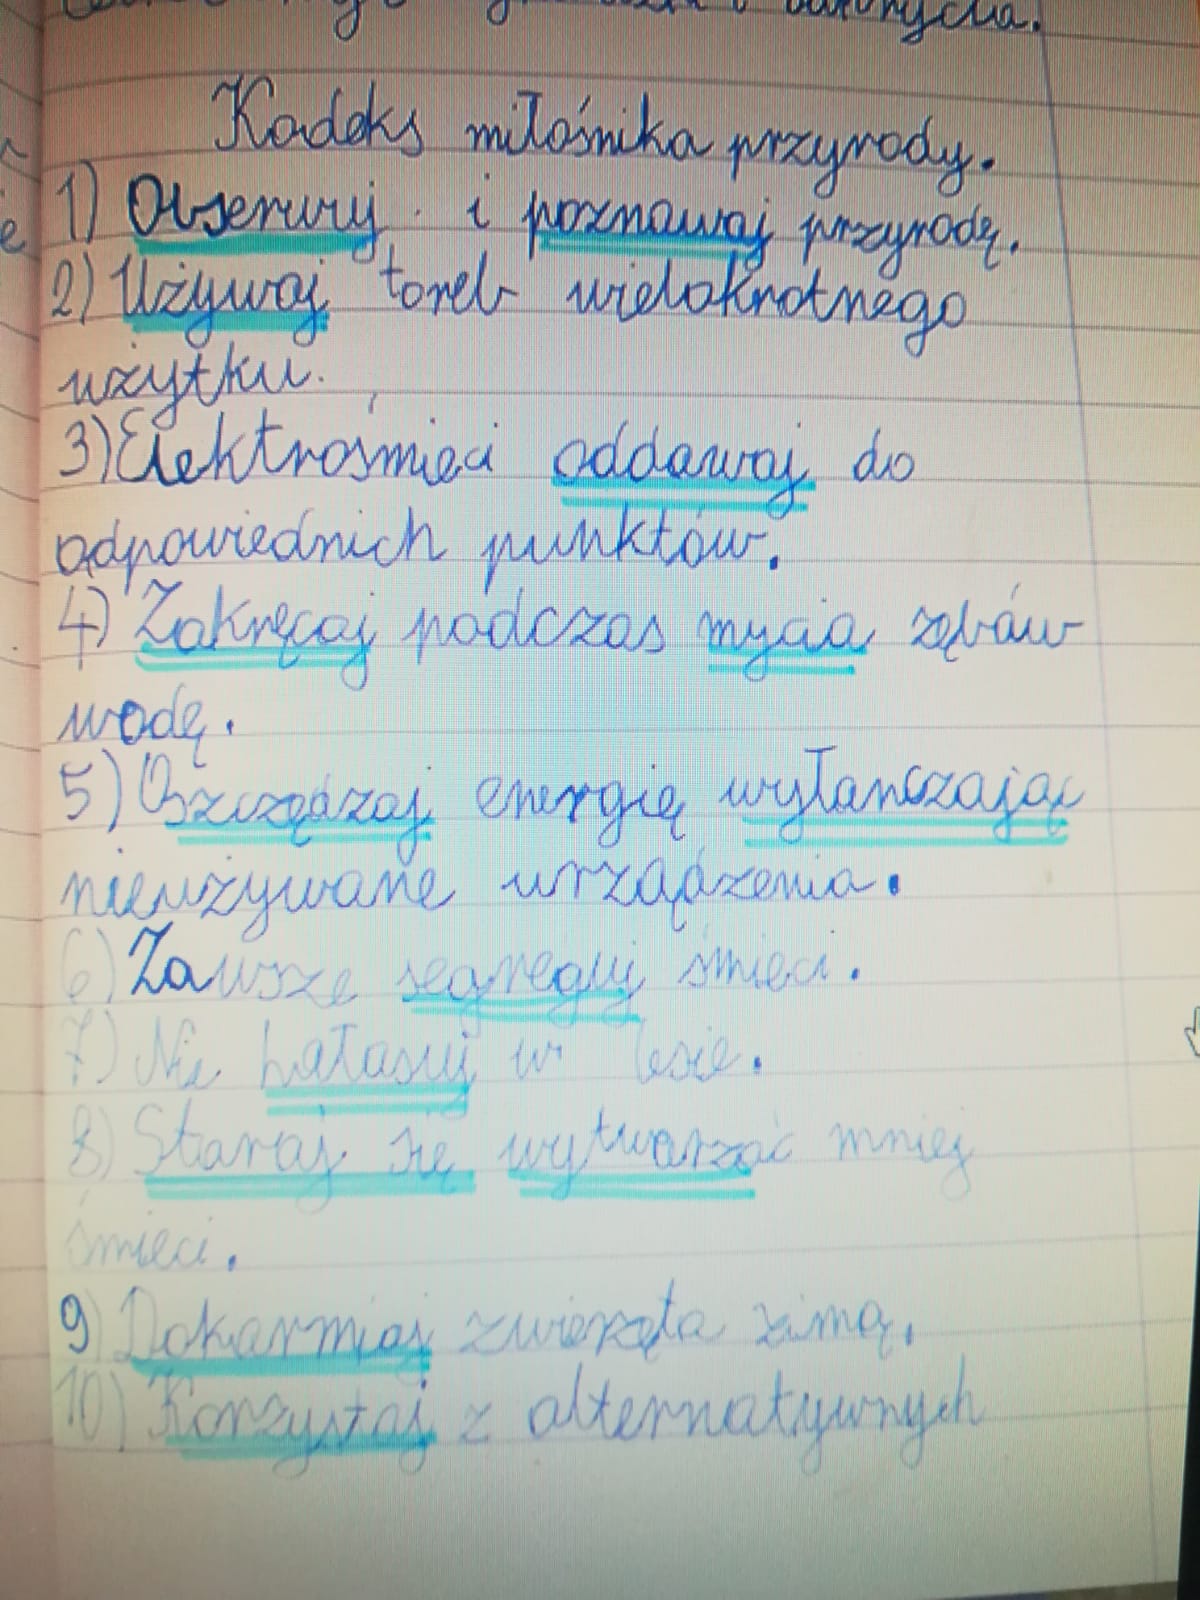 Kodeks miłośnika przyrody.
1) Obserwuj i poznawaj przyrodę.
2) Używaj toreb wielokrotnego
użytku.
3) Elektrośmieci oddawaj do
odpowiednich punktów.
4) Zakręcaj podczas mycia zębów
wodę.
5) Oszczędzaj energię wyłanczając
nieużywane urządzenia.
6) Zawsze segreguj śmieci.
7) Nie hałasuj w lesie.
8) Staraj się wytwarzać mniej
śmieci.
9) Dokarmiaj zwierzęta zimą.
10) Korzystaj z alternatywnych